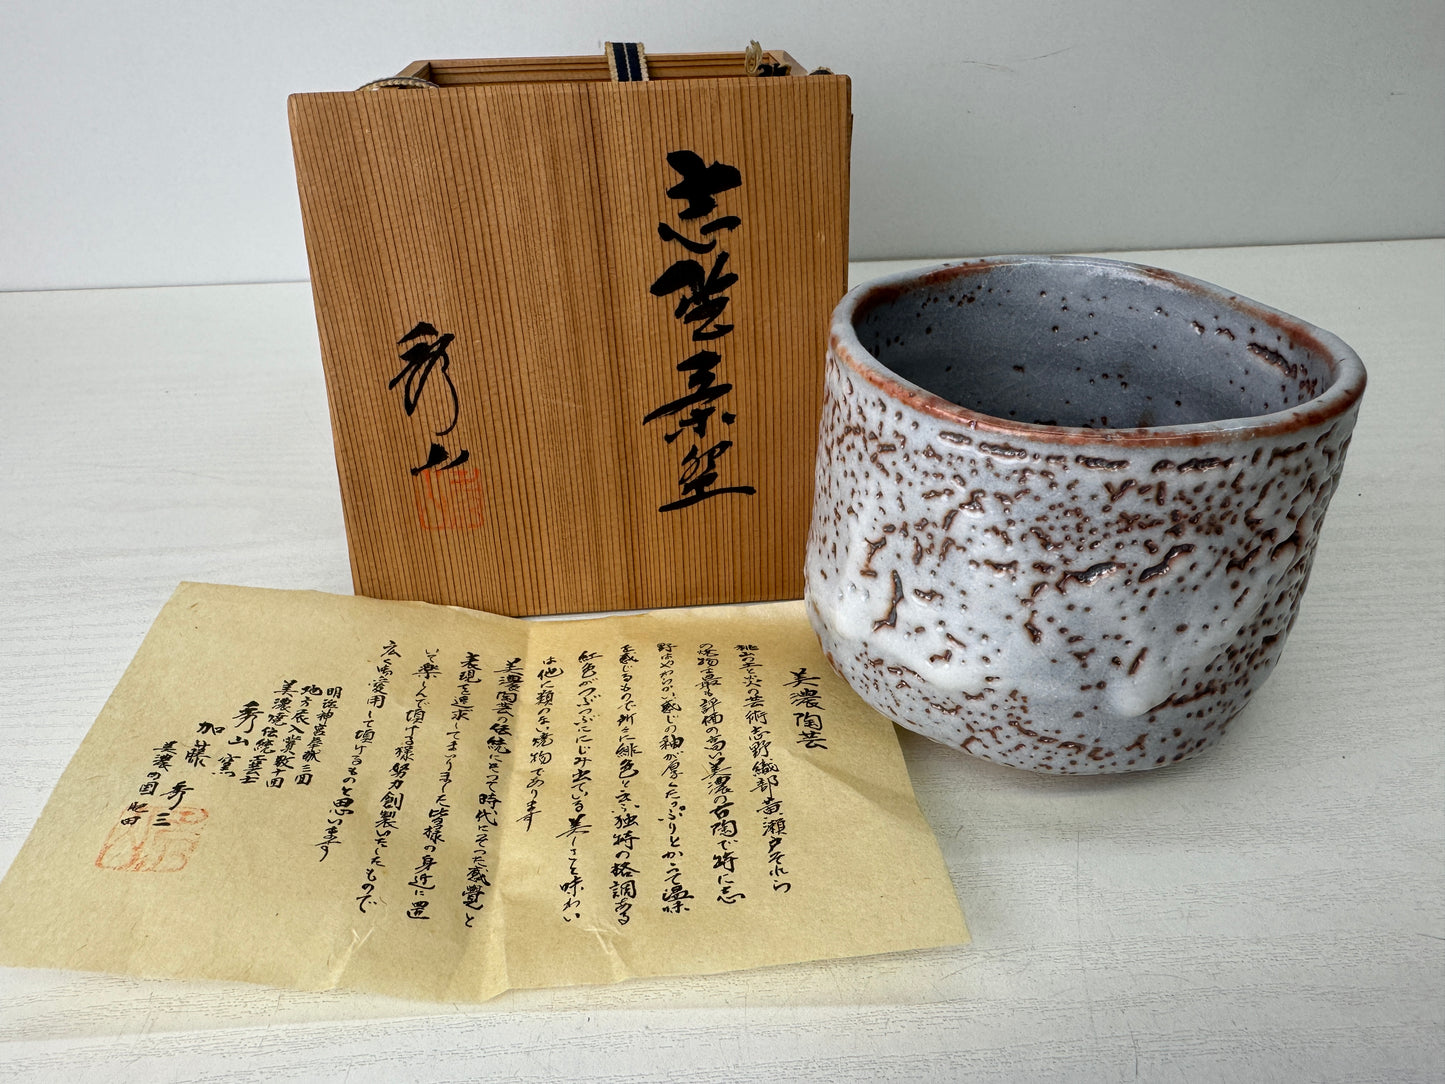 志野茶垸
秀山
美濃陶芸
桃山の土と火の芸術志野織部黄瀬戸それら
の焼物は最も評価の高い美濃の古陶で特に志
野はやわらかい感じの釉が厚くたっぷりとかゝって温味
を感じるもので所々に緋色と云ふ独特の格調ある
紅色がつぶつぶににじみ出ている美しさと味わい
は他に類のない焼物であります
美濃陶芸の伝統にそって時代にそった感覚と
表現を追求してまいりました皆様の身近に置
いて楽しんで頂ける様努力創製いたしたもので
広く御愛用して頂けるものと思います
明治神宮奉献三回
地方展入賞数十回
美濃焼伝統工芸士
秀山窯
加藤秀三
美濃の国肥田